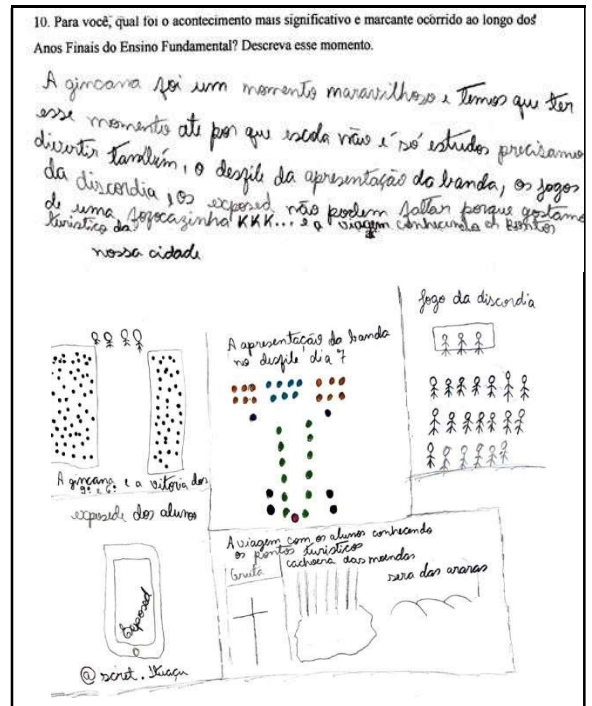 10. Para você, qual foi o acontecimento mais significativo e marcante ocorrido ao longo dos
Anos Finais do Ensino Fundamental? Descreva esse momento.
A gincana foi um momento maravilhoso e temos que ter
esse momento ate por que escola não é só estudos precisamo
divertir também, o desfile da apresentação da banda, os jogos
da discordia, os exposed não podem faltar porque gostamo
de uma fofocazinha KKK... e a viagem conhecendo os pontos
turistico da
nossa cidade
A gincana e a vitoria dos
9º e 6º
A apresentação da banda
no desfile dia 7
Jogo da discordia
exposed dos alunos
Exposed
@ scret. Ituaçu
A viagem com os alunos conhecendo
os pontos turisticos
Gruta
cachoeira das moendas
sera das araras